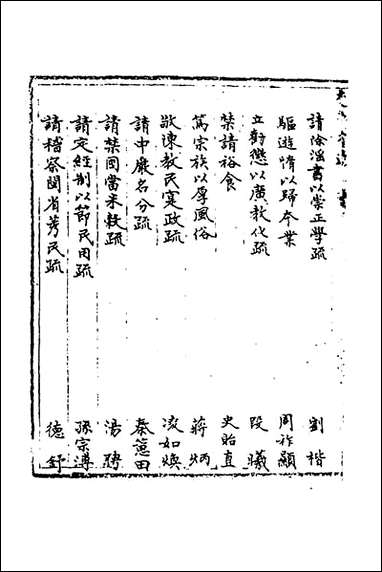 請除淫書以崇正學疏　劉楷
驅遊惰以歸本業　周祚顯
立勸懲以廣教化疏　段曦
禁請裕食　史貽直
篤宗族以厚風俗　蔣炳
敬陳教民寔政疏　凌如煥
請申嚴名分疏　秦蕙田
請禁囤當米穀疏　湯聘
請定經制以節民用疏　孫宗溥
請稽察閩省莠民疏　德舒